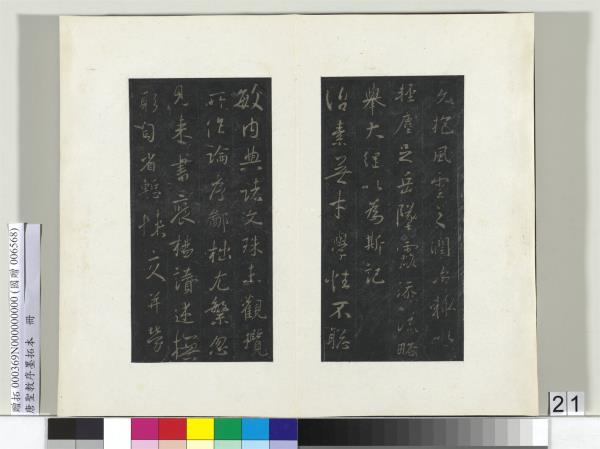 久抱風雲之潤治輒以
輕塵足岳墜露添流略
舉大綱以為斯記
治素無才學性不聰
敏內典諸文殊未觀攬
所作論序鄙拙尤繁忽
見來書褒揚讚述撫
躬自省慙悚交并勞
贈拓 000369N000000000 (國贈 006568)
唐聖教序墨拓本 冊
21